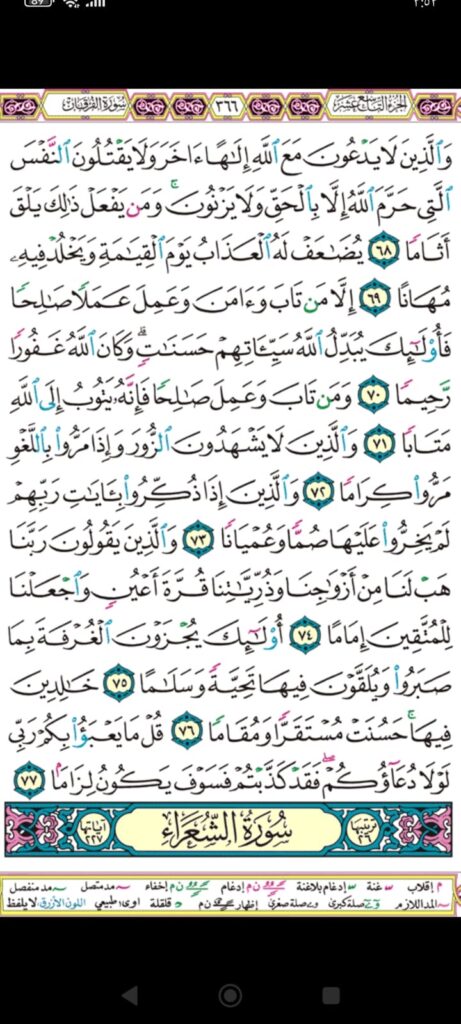 89 ٢:٥٢
الجزء التاسع عشر ٣٦٦ سورة الفرقان
وَٱلَّذِينَ لَا يَدْعُونَ مَعَ ٱللَّهِ إِلَٰهًا ءَاخَرَ وَلَا يَقْتُلُونَ ٱلنَّفْسَ
ٱلَّتِي حَرَّمَ ٱللَّهُ إِلَّا بِٱلْحَقِّ وَلَا يَزْنُونَۚ وَمَن يَفْعَلْ ذَٰلِكَ يَلْقَ
أَثَامًا ٦٨ يُضَٰعَفْ لَهُ ٱلْعَذَابُ يَوْمَ ٱلْقِيَٰمَةِ وَيَخْلُدْ فِيهِۦ
مُهَانًا ٦٩ إِلَّا مَن تَابَ وَءَامَنَ وَعَمِلَ عَمَلًا صَٰلِحًا
فَأُو۟لَٰٓئِكَ يُبَدِّلُ ٱللَّهُ سَيِّـَٔاتِهِمْ حَسَنَٰتٍۗ وَكَانَ ٱللَّهُ غَفُورًا
رَّحِيمًا ٧٠ وَمَن تَابَ وَعَمِلَ صَٰلِحًا فَإِنَّهُۥ يَتُوبُ إِلَى ٱللَّهِ
مَتَابًا ٧١ وَٱلَّذِينَ لَا يَشْهَدُونَ ٱلزُّورَ وَإِذَا مَرُّوا۟ بِٱللَّغْوِ
مَرُّوا۟ كِرَامًا ٧٢ وَٱلَّذِينَ إِذَا ذُكِّرُوا۟ بِـَٔايَٰتِ رَبِّهِمْ
لَمْ يَخِرُّوا۟ عَلَيْهَا صُمًّا وَعُمْيَانًا ٧٣ وَٱلَّذِينَ يَقُولُونَ رَبَّنَا
هَبْ لَنَا مِنْ أَزْوَٰجِنَا وَذُرِّيَّٰتِنَا قُرَّةَ أَعْيُنٍ وَٱجْعَلْنَا
لِلْمُتَّقِينَ إِمَامًا ٧٤ أُو۟لَٰٓئِكَ يُجْزَوْنَ ٱلْغُرْفَةَ بِمَا
صَبَرُوا۟ وَيُلَقَّوْنَ فِيهَا تَحِيَّةً وَسَلَٰمًا ٧٥ خَٰلِدِينَ
فِيهَاۚ حَسُنَتْ مُسْتَقَرًّا وَمُقَامًا ٧٦ قُلْ مَا يَعْبَؤُا۟ بِكُمْ رَبِّي
لَوْلَا دُعَآؤُكُمْۖ فَقَدْ كَذَّبْتُمْ فَسَوْفَ يَكُونُ لِزَامًۢا ٧٧
ترتيبها ٢٦ سُورَةُ الشُّعَرَاءِ آياتها ٢٢٧
م إقلاب غنة إدغام بلاغنة ن م إدغام ن م إخفاء مد متصل مد منفصل
المد اللازم صلة كبرى صلة صغرى إظهار ن م قلقلة اوى طبيعي اللون الأزرق لا يلفظ